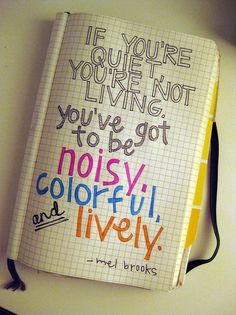 IF YOU'RE
QUIET,
YOU'RE NOT
LIVING.
you've got
to be
noisy,
colorful,
and lively.
- mel brooks